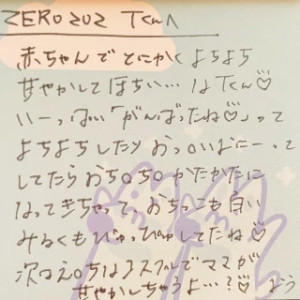 ZERO 202 Tくんへ
赤ちゃんでとにかくよちよち
甘やかしてほちい…なTくん♡
いーっぱい「がんばったね♡」って
よちよちしたりおっ〇いぱにーって
してたらおち〇ち〇かたかたに
なってきちゃって、おちっこも白い
みるくもぴゅっぴゅしてたね♡
次のえ〇ちはコスプレでママが
甘やかしちゃうよ…?♡ よう